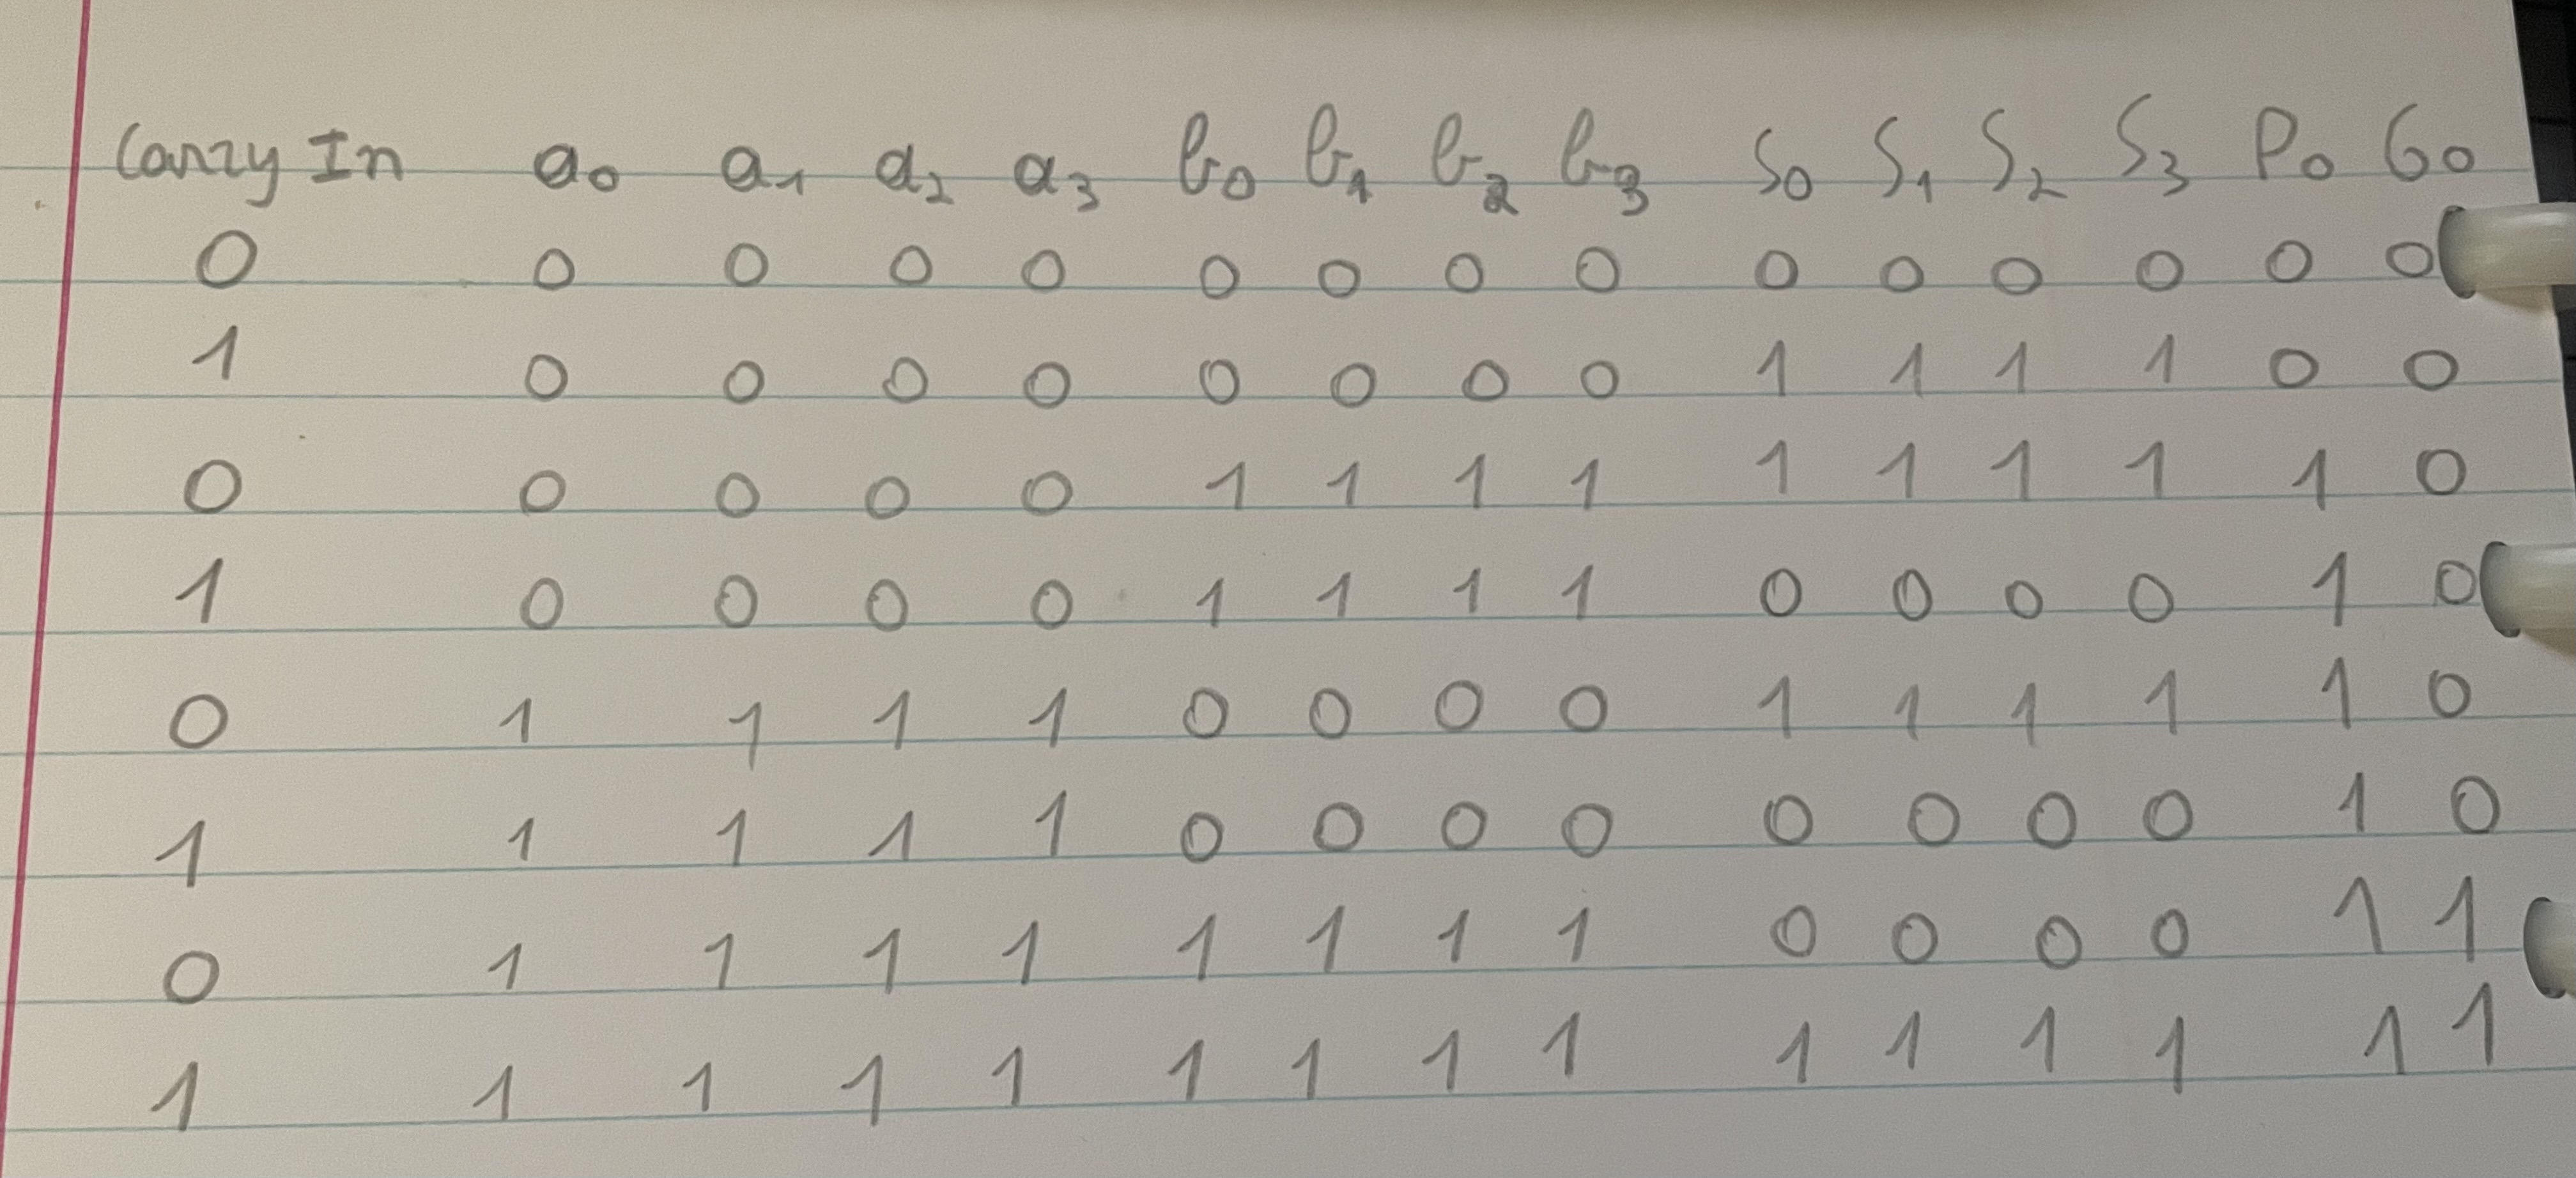 Carry In a₀ a₁ a₂ a₃ b₀ b₁ b₂ b₃ S₀ S₁ S₂ S₃ P₀ G₀
0 0 0 0 0 0 0 0 0 0 0 0 0 0 0
1 0 0 0 0 0 0 0 0 1 1 1 1 0 0
0 0 0 0 0 1 1 1 1 1 1 1 1 1 0
1 0 0 0 0 1 1 1 1 0 0 0 0 1 0
0 1 1 1 1 0 0 0 0 1 1 1 1 1 0
1 1 1 1 1 0 0 0 0 0 0 0 0 1 0
0 1 1 1 1 1 1 1 1 0 0 0 0 1 1
1 1 1 1 1 1 1 1 1 1 1 1 1 1 1